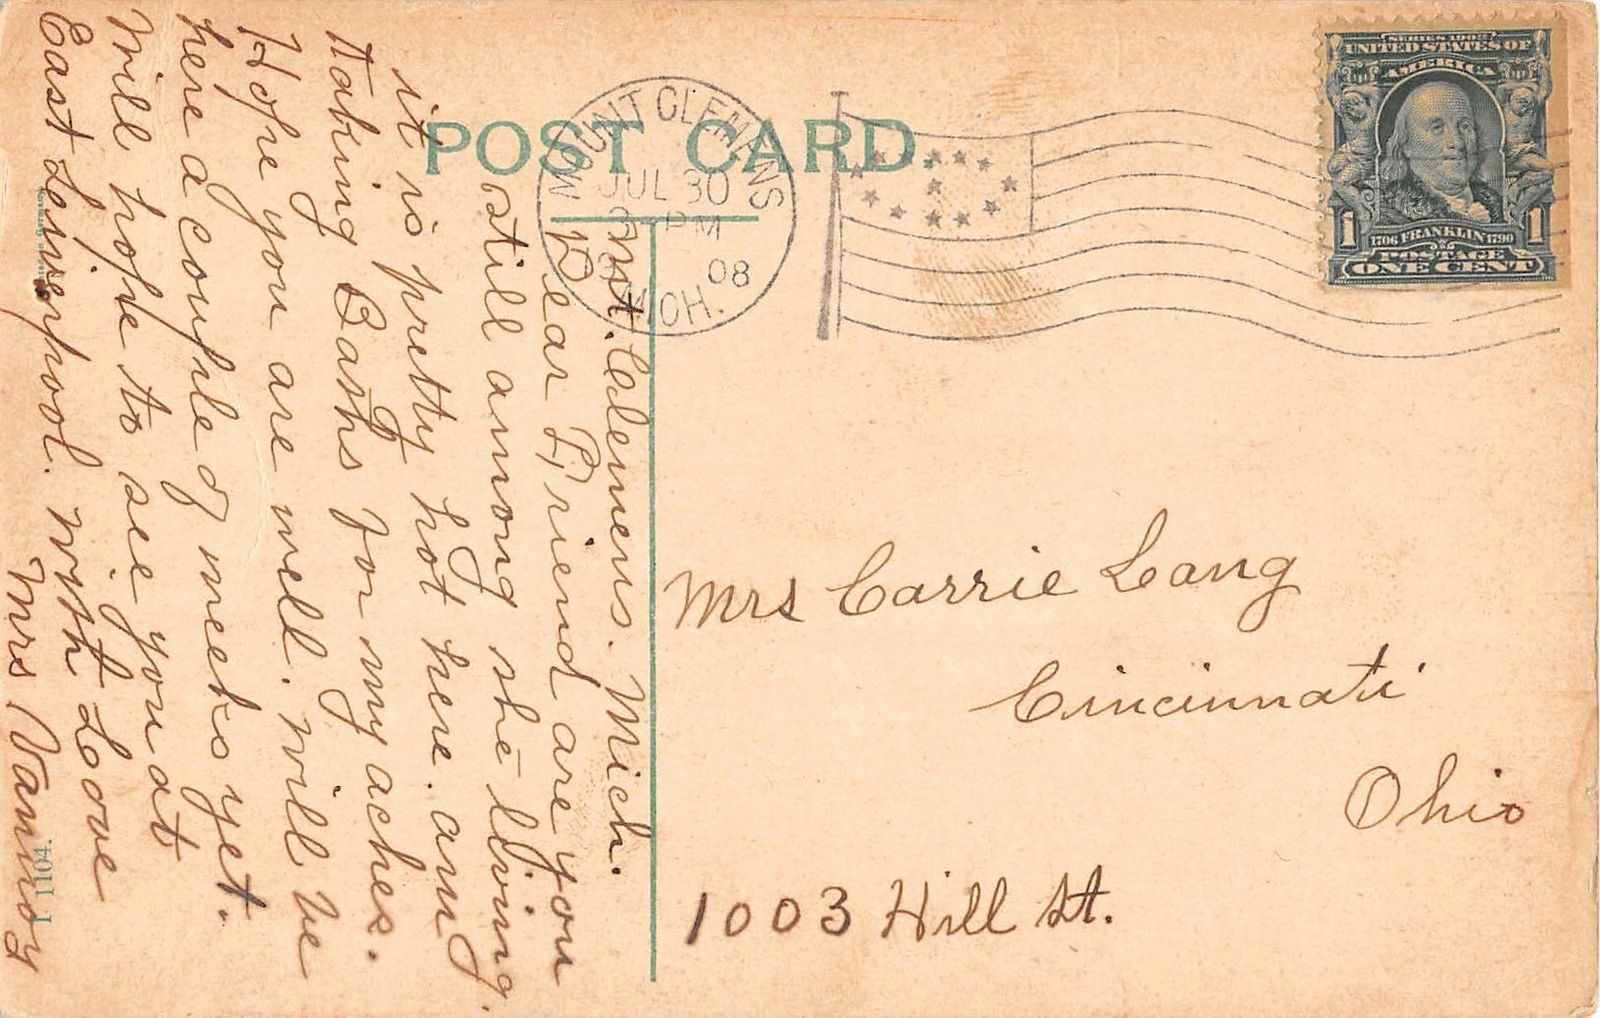 POST CARD.
MOUNT CLEMENS
JUL 30
PM
08
MICH.
SERIES 1902
UNITED STATES OF
AMERICA
1706 FRANKLIN 1790
1 1
POSTAGE
ONE CENT
Mt. Clemens. Mich.
Dear Friend are you
still among the living.
it is pretty hot here. am
taking Baths for my aches.
Hope you are well. Will be
here a couple of weeks yet.
Will hope to see you at
East Liverpool. With Love
Mrs
Mrs Carrie Lang
Cincinnati
Ohio
1003 Hill St.
1104.